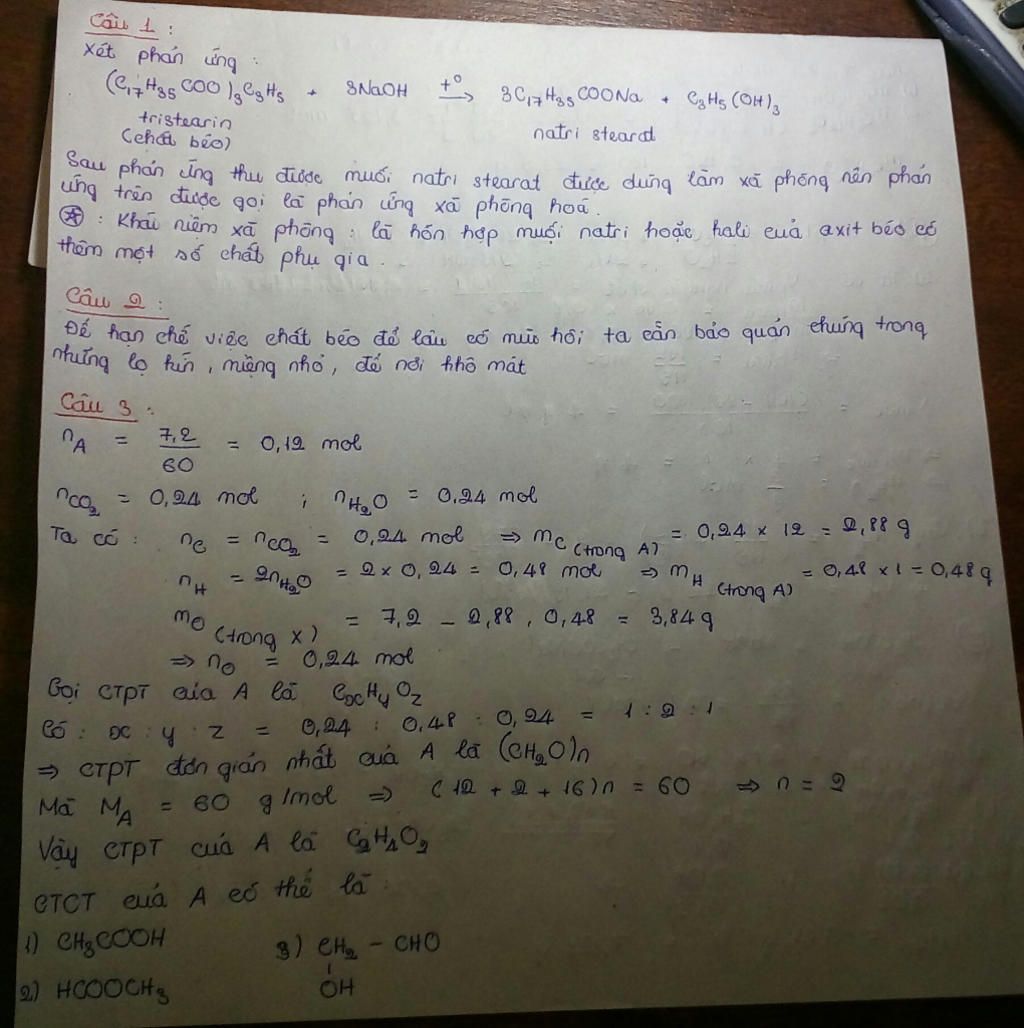 Câu 1 :
Xét phản ứng :
(C17H35COO)3C3H5 + 3NaOH +° → 3C17H35COONa + C3H5(OH)3
tristearin natri stearat
(chất béo)
Sau phản ứng thu được muối natri stearat được dùng làm xà phòng nên phản
ứng trên được gọi là phản ứng xà phòng hoá.
☆ : Khái niệm xà phòng : là hỗn hợp muối natri hoặc kali của axit béo có
thêm một số chất phụ gia .
Câu 2 :
Để hạn chế việc chất béo để lâu có mùi hôi, ta cần bảo quản chúng trong
những lọ kín , miệng nhỏ , để nơi khô mát
Câu 3 :
nA = 7,2/60 = 0,12 mol
nCO2 = 0,24 mol ; nH2O = 0,24 mol
Ta có : nC = nCO2 = 0,24 mol ⇒ mC (trong A) = 0,24 × 12 = 2,88 g
nH = 2nH2O = 2 × 0,24 = 0,48 mol ⇒ mH (trong A) = 0,48 × 1 = 0,48 g
mO (trong X) = 7,2 - 2,88 , 0,48 = 3,84 g
⇒ nO = 0,24 mol
Gọi CTPT của A là CxHyOz
Có : x : y : z = 0,24 : 0,48 : 0,24 = 1 : 2 : 1
⇒ CTPT đơn giản nhất của A là (CH2O)n
Mà MA = 60 g/mol ⇒ (12 + 2 + 16)n = 60 ⇒ n = 2
Vậy CTPT của A là C2H4O2
CTCT của A có thể là :
1) CH3COOH 3) CH2 - CHO
OH
2) HCOOCH3